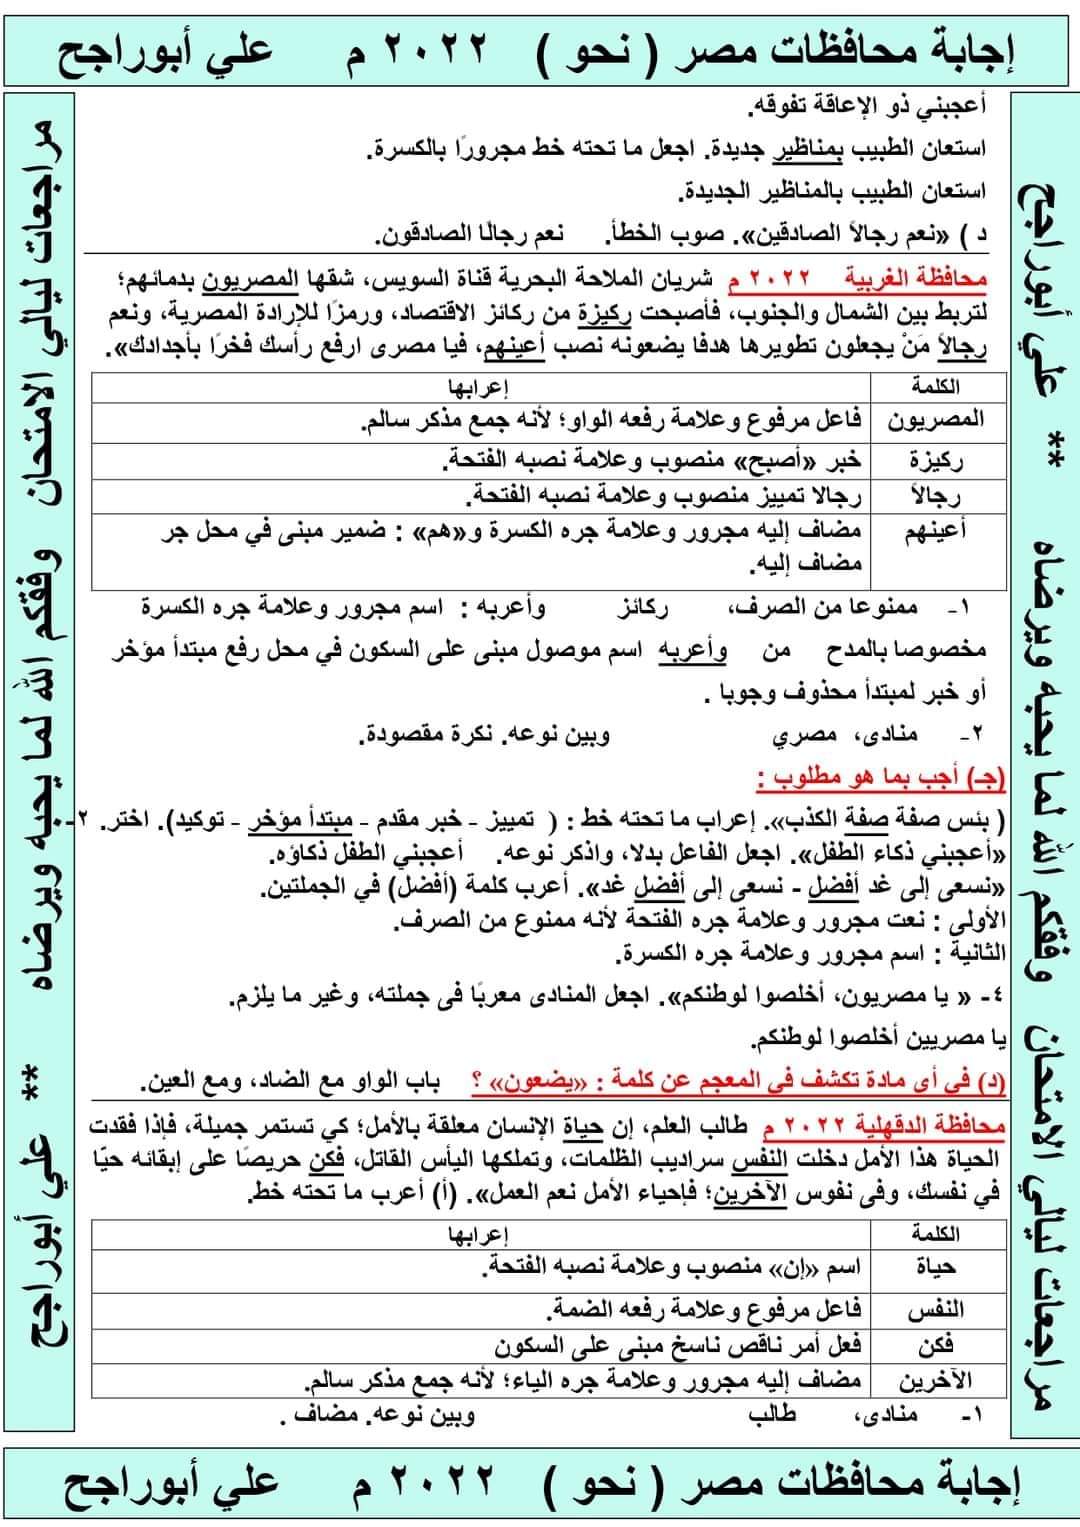 إجابة محافظات مصر ( نحو ) ٢٠٢٢ م علي أبوراجح
مراجعات ليالي الامتحان وفقكم الله لما يحبه ويرضاه ** علي أبوراجح
أعجبني ذو الإعاقة تفوقه.
استعان الطبيب بمناظير جديدة. اجعل ما تحته خط مجرورًا بالكسرة.
استعان الطبيب بالمناظير الجديدة.
د ) «نعم رجالاً الصادقين». صوب الخطأ. نعم رجالًا الصادقون.
محافظة الغربية ٢٠٢٢ م شريان الملاحة البحرية قناة السويس، شقها المصريون بدمائهم؛
لتربط بين الشمال والجنوب، فأصبحت ركيزة من ركائز الاقتصاد، ورمزًا للإرادة المصرية، ونعم
رجالاً مَنْ يجعلون تطويرها هدفا يضعونه نصب أعينهم، فيا مصرى ارفع رأسك فخرًا بأجدادك».
الكلمة إعرابها
المصريون فاعل مرفوع وعلامة رفعه الواو؛ لأنه جمع مذكر سالم.
ركيزة خبر «أصبح» منصوب وعلامة نصبه الفتحة.
رجالاً رجالا تمييز منصوب وعلامة نصبه الفتحة.
أعينهم مضاف إليه مجرور وعلامة جره الكسرة و«هم» : ضمير مبنى في محل جر
مضاف إليه.
١- ممنوعا من الصرف، ركائز وأعربه : اسم مجرور وعلامة جره الكسرة
مخصوصا بالمدح من وأعربه اسم موصول مبنى على السكون في محل رفع مبتدأ مؤخر
أو خبر لمبتدأ محذوف وجوبا .
٢- منادى، مصري وبين نوعه. نكرة مقصودة.
(جـ) أجب بما هو مطلوب :
( بئس صفة صفة الكذب». إعراب ما تحته خط : ( تمييز - خبر مقدم - مبتدأ مؤخر - توكيد). اختر. ٢-
«أعجبني ذكاء الطفل». اجعل الفاعل بدلا، واذكر نوعه. أعجبني الطفل ذكاؤه.
«نسعى إلى غد أفضل - نسعى إلى أفضل غد». أعرب كلمة (أفضل) في الجملتين.
الأولى : نعت مجرور وعلامة جره الفتحة لأنه ممنوع من الصرف.
الثانية : اسم مجرور وعلامة جره الكسرة.
٤- « يا مصريون، أخلصوا لوطنكم». اجعل المنادى معربًا فى جملته، وغير ما يلزم.
يا مصريين أخلصوا لوطنكم.
(د) في أي مادة تكشف في المعجم عن كلمة : «يضعون» ؟ باب الواو مع الضاد، ومع العين.
محافظة الدقهلية ٢٠٢٢ م طالب العلم، إن حياة الإنسان معلقة بالأمل؛ كي تستمر جميلة، فإذا فقدت
الحياة هذا الأمل دخلت النفس سراديب الظلمات، وتملكها اليأس القاتل، فكن حريصًا على إبقائه حيًا
في نفسك، وفى نفوس الآخرين؛ فإحياء الأمل نعم العمل». (أ) أعرب ما تحته خط.
الكلمة إعرابها
حياة اسم «إن» منصوب وعلامة نصبه الفتحة.
النفس فاعل مرفوع وعلامة رفعه الضمة.
فكن فعل أمر ناقص ناسخ مبنى على السكون
الآخرين مضاف إليه مجرور وعلامة جره الياء؛ لأنه جمع مذكر سالم.
١- منادى، طالب وبين نوعه. مضاف .
مراجعات ليالي الامتحان وفقكم الله لما يحبه ويرضاه ** علي أبوراجح
إجابة محافظات مصر ( نحو ) ٢٠٢٢ م علي أبوراجح